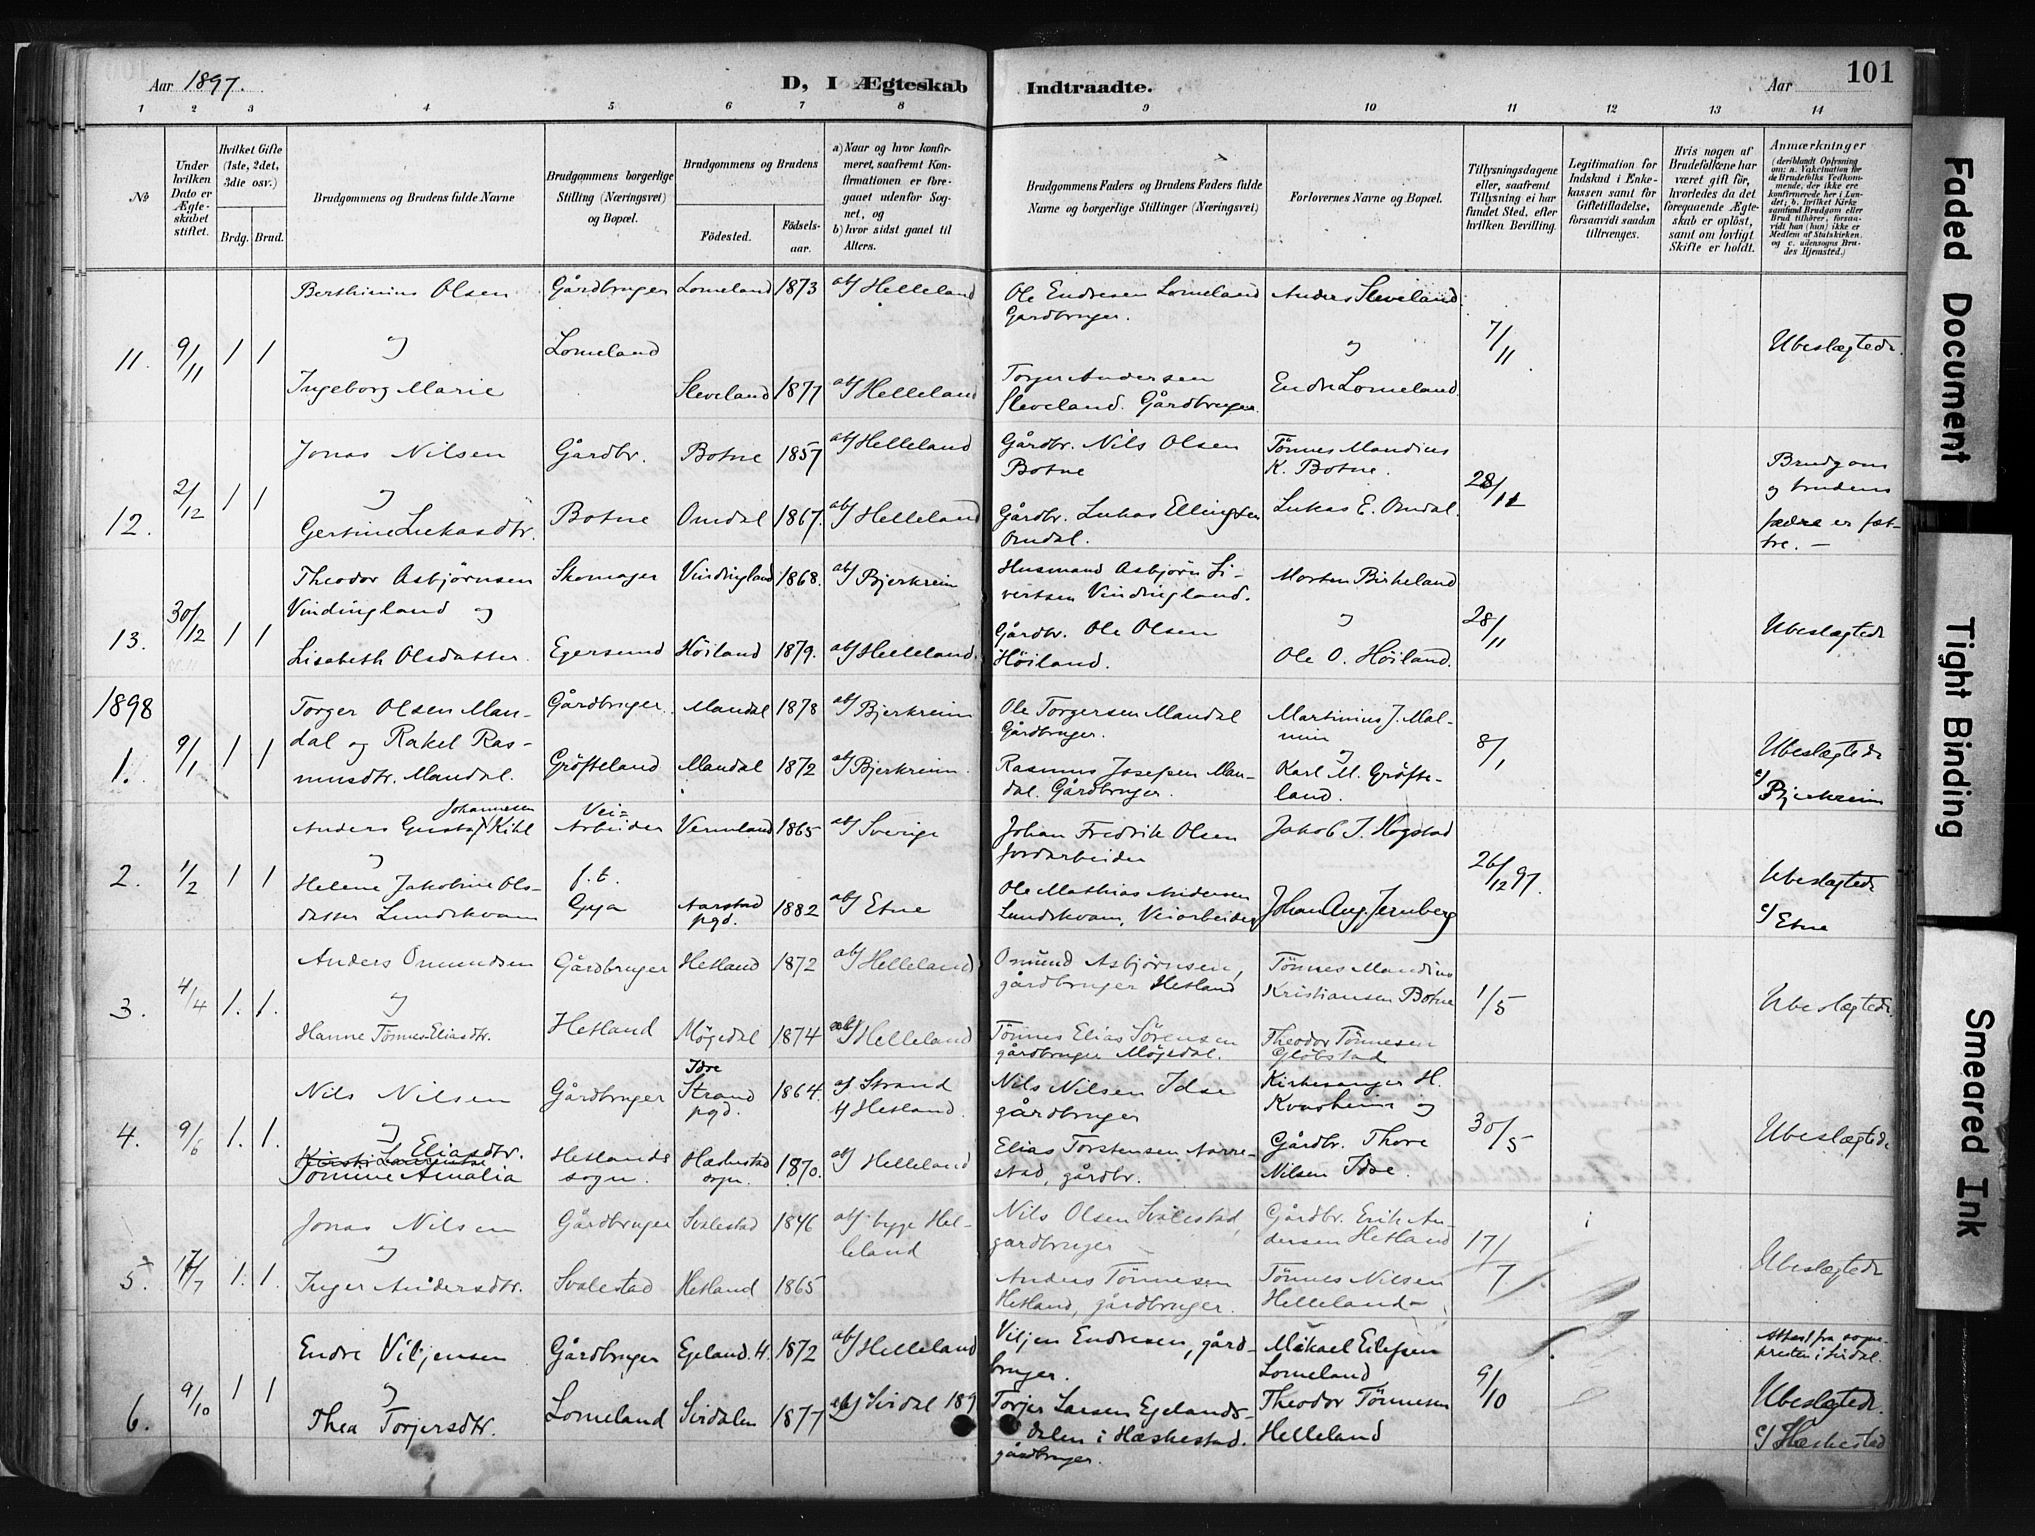 Aar 1897.
D, I Ægteskab Indtraadte.
Aar
101
1 2 3 4 5 6 7 8 9 10 11 12 13 14
№
Under hvilken Dato er Ægteskabet stiftet.
Hvilket Gifte (1ste, 2det, 3die osv.)
Brdg. Brud.
Brudgommens og Brudens fulde Navne
Brudgommens borgerlige Stilling (Næringsvei) og Bopæl.
Brudgommens og Brudens
Födested.
Födselsaar.
a) Naar og hvor konfirmeret, saafremt Konfirmationen er foregaaet udenfor Sognet, og
b) hvor sidst gaaet til Alters.
Brudgommens Faders og Brudens Faders fulde Navne og borgerlige Stillinger (Næringsvei)
Forlovernes Navne og Bopæl.
Tillysningsdagene eller, saafremt Tillysning ei har fundet Sted, efter hvilken Bevilling.
Legitimation for Indskud i Enkekassen samt for Giftetilladelse, forsaavidt saadan tiltrænges.
Hvis nogen af Brudefolkene har været gift för, hvorledes da det foregaaende Ægteskab er oplöst, samt om lovligt Skifte er holdt.
Anmærkninger
(deriblandt Oplysning om: a. Vakcination for de Brudefolks Vedkommende, der ikke ere konfirmerede her i Landet; b. hvilket Kirkesamfund Brudgom eller Brud tilhörer, forsaavidt han (hun) ikke er Medlem af Statskirken. og c. udensogns Brudes Hjemsted.)
11. 9/11 1 1
Berthinius Olsen Gårdbruger Lomeland 1873 ab/ Helleland Ole Endresen Lomeland Anders Sleveland
Gardbruger.
og Lomeland og 7/11 Ubeslægtede.
Ingeborg Marie Sleveland 1877 ab/ Helleland Torger Andersen Endre Lomeland.
Sleveland. Gårdbruger.
Jonas Nilsen Gårdbr. Botne 1857 ab/ Helleland Gårdbr. Nils Olsen Tönnes Mandius
Botne K. Botne. Brudgoms
12. 2/12 1 1 og 28/11 og brudens
Gertine Lukasdtr. Botne Omdal 1867. ab/ Helleland Gårdbr. Lukas Ellingsen Lukas E. Omdal. fædre er fæt-
Omdal. tre. —
Theodor Asbjørnsen Skomager Vindingland 1868. ab/ Bjerkreim Husmand Asbjørn Si- Morten Birkeland
Vindingland og vertsen Vindingland.
13. 30/12 1 1 og 28/11 Ubeslægtede
Lisabeth Olsdatter. Egersund Höiland 1879. ab/ Helleland. Gårdbr. Ole Olsen Ole O. Höiland.
Höiland.
1898
Torger Olsen Man- Gårdbruger. Mandal 1878 ab/ Bjerkreim Ole Torgersen Mandal Martinius J. Mal-
dal og Rakel Ras- Gårdbruger. min og
1. 9/1 1 1 8/1 Ubeslægtede
musdtr. Mandal. Gröfteland Mandal 1872 ab/ Bjerkreim. Rasmus Josefsen Man- Karl M. Gröfte- c/
dal. Gårdbruger. land. Bjerkreim
Johannesen Vei-
Anders Gustaf Kihl Arbeider Vermland 1865 ab/ Sverige Johan Fredrik Olsen Jakob J. Hogstad
og Jordarbeider
2. 1/2 1 1 26/12 97. Ubeslægtede
Helene Jakobine Ols- f. t. Ole Mathias Andersen
datter Lundskvam Gya Aarstad 1882 ab/ Etne Lundskvam, Veiarbeider Johan Aug. Jernberg c/ Etne
pgd.
Anders Omundsen Gårdbruger Hetland 1872 ab/ Helleland Omund Asbjørnsen, Tönnes Mandius
gårdbruger Hetland Kristiansen Botne
3. 4/4 1. 1. og 1/5 Ubeslægtede
Hanne Tönnes-Eliasdtr. Hetland Mögedal 1874 ab/ Helleland Tönnes Elias Sörensen Theodor Tönnesen
gårdbruger Mögedal.
Idse
Nils Nilsen Gårdbruger Strand 1864. a/ Strand Nils Nilsen Idse Kirkesanger H.
pgd. b/ Hetland. gårdbruger Kvasheim og
4. 9/6 1. 1. og 30/5 Ubeslægtede
Eliasdtr. Hetlands Elias Torstensen Aarre- Gårdbr. Thore
Tomine Amalia sogn. 1870. ab/ Helleland stad, gårdbr. Nilsen Idse.
Jonas Nilsen Gårdbruger Svalestad 1846 ab/ bygs Hel- Nils Olsen Svalestad, Gårdbr. Erik An-
leland gardbruger dersen Hetland
5. 1. 1. og 17/7 Ubeslægtede
Inger Andersdtr. Svalestad Hetland 1865 Anders Tönnesen Tönnes Nilsen
Hetland, gårdbruger. Helleland
Endre Viljensen Gårdbruger Egeland. H. 1872 ab/ Helleland Viljen Endresen, gård- Mikael Eilefsen Attest fra sogne-
bruger. Lomeland presten i Sirdal.
6. 9/10 1 1 og 9/10 Ubeslægtede.
Thea Torjersdtr. Lomeland Sirdalen 1877 ab/ Sirdal 189 Torjer Larsen Egelands- Theodor Tönnesen
dalen i Hæskestad. Helleland c/ Hæskestad
gårdbruger.
Faded Document
Tight Binding
Smeared Ink